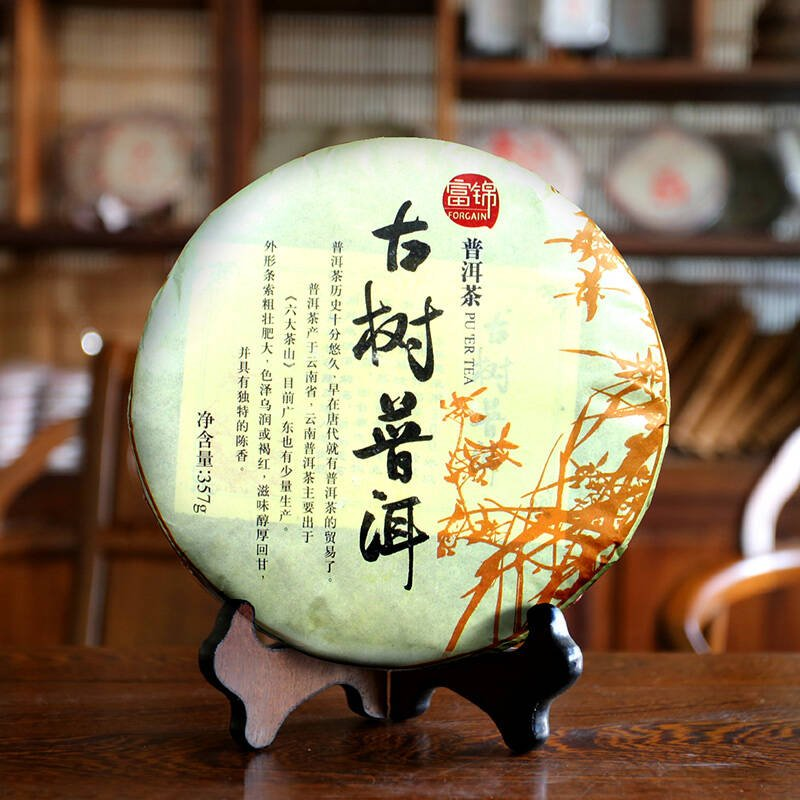 富锦
FORGAIN
普洱茶 PU'ER TEA
古树普洱
普洱茶历史十分悠久，早在唐代就有普洱茶的贸易了。
普洱茶产于云南省，云南普洱茶主要出于
《六大茶山》目前广东也有少量生产。
外形条索粗壮肥大，色泽乌润或褐红，滋味醇厚回甘，
并具有独特的陈香。
净含量:357g